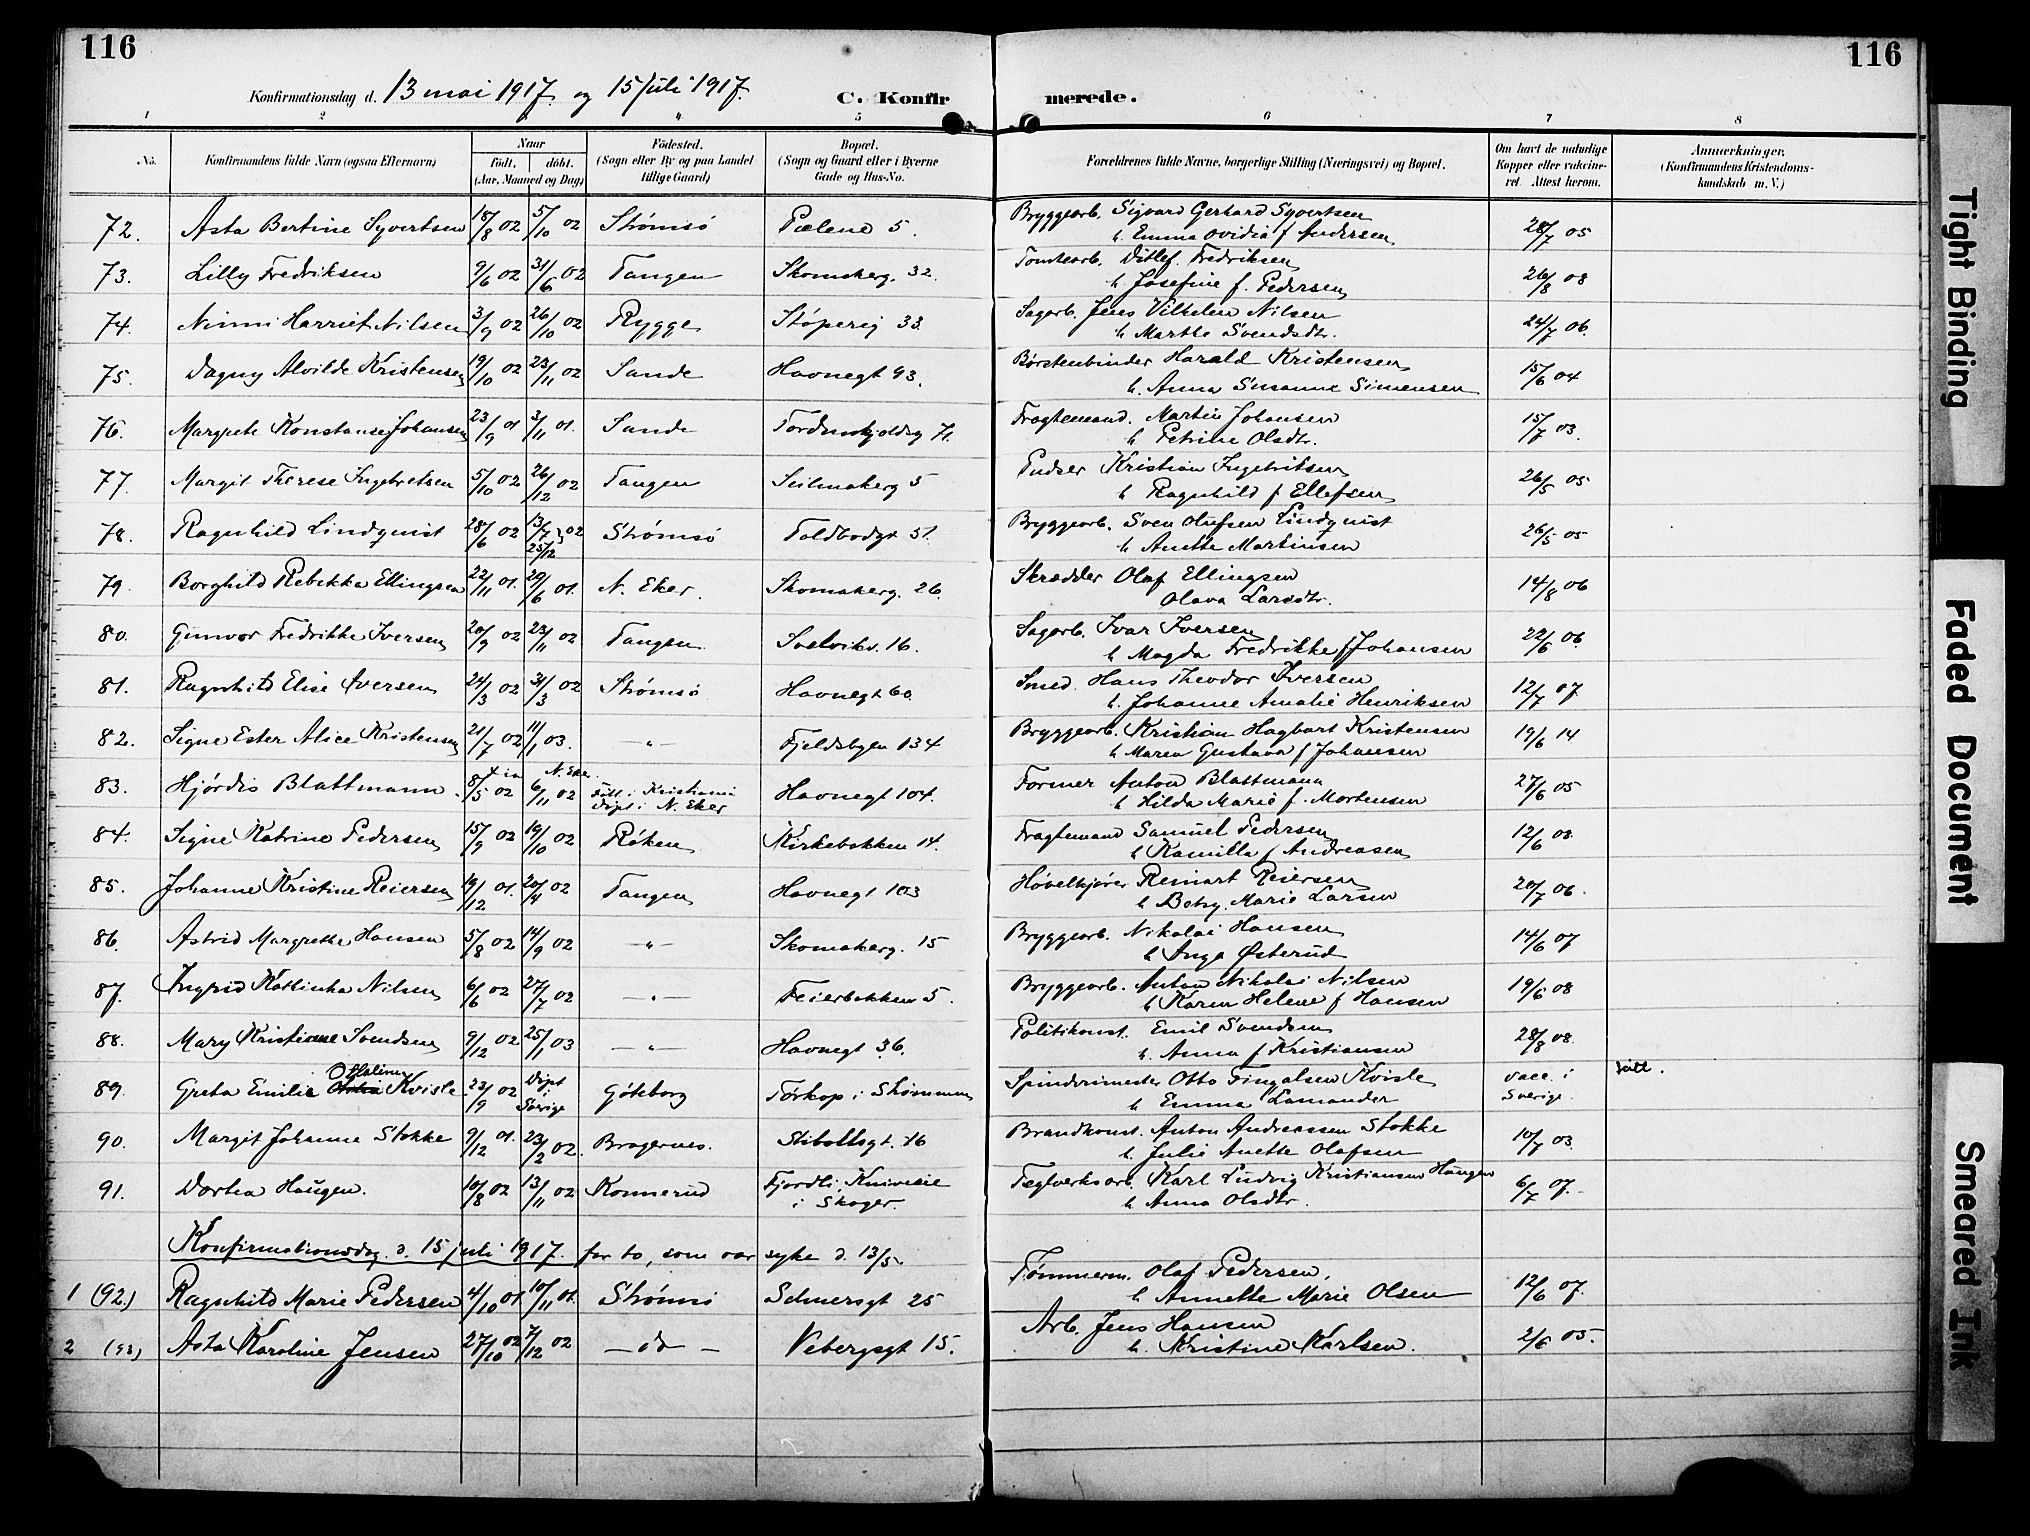 116
116
Konfirmationsdag d. 13 mai 1917. og 15 juli 1917.
C. Konfir
merede.
1 2 3 4 5 6 7 8
No.
Konfirmandens fulde Navn (ogsaa Efternavn)
Naar
født. døbt.
(Aar, Maaned og Dag)
Fødested.
(Sogn eller By og paa Landet
tillige Gaard)
Bopæl.
(Sogn og Gaard eller i Byerne
Gade og Hus-No.
Forældrenes fulde Navne, borgerlige Stilling (Næringsvei) og Bopæl.
Om havt de naturlige
Kopper eller vakcine-
ret. Attest herom.
Anmærkninger,
(Konfirmandens Kristendoms-
kundskab m. V.)
72. Asta Bertine Syvertsen 18/8 02 5/10 02 Strømsø Pælene 5. Bryggearb. Sigvard Gerhard Syvertsen 28/7 05
h. Emma Ovidia f Andersen
73. Lilly Fredriksen 9/6 02 31/6 02 Tangen Skomakerg. 32. Tomtearb. Ditlef. Fredriksen 26/8 08
h. Josefine f. Pedersen
74. Ninni Harriet Nilsen 3/9 02 26/10 02 Rygge Støperig 33. Sagarb. Jens Vilhelm Nilsen 24/7 06.
h Marthe Svendsdtr.
75. Dagny Alvilde Kristensen 19/10 02 23/11 02 Sande Havnegt 93. Børstenbinder Harald Kristensen 15/6 04
h. Anna Susanne Simensen
76. Margrete Konstanse Johansen 23/9 01 3/11 01. Sande Tordenskjoldsg 71. Fragtemand. Martin Johansen 15/7 03.
h Petrine Olsdtr.
77. Margit Therese Ingebretsen 5/10 02 26/12 02 Tangen Seilmakerg 5 Pudser Kristian Ingebriktsen 26/5 05
h Ragnhild f Ellefsen
78. Ragnhild Lindqvist 28/6 02 13/7 25/12 02 Strømsø Toldbodgt 51. Bryggearb. Sven Olufsen Lindqvist 26/5 05
h Anette Martinsen
79. Borghild Rebekka Ellingsen 22/11 01. 29/6 01. N. Eker. Skomakerg. 26. Skrædder Olaf Ellingsen 14/8 06
Olava Larsdtr.
80. Gunvor Fredrikke Iversen 20/9 02 23/11 02 Tangen Svelvikv. 16. Sagarb. Ivar Iversen 22/6 06.
h Magda Fredrikke f Johansen
81. Ragnhild Elise Iversen 24/3 02 31/3 02 Strømsø Havnegt 60 Smed. Hans Theodor Iversen 12/7 07.
h. Johanne Amalie Henriksen
82. Signe Ester Alice Kristensen 21/7 02 11/1 03. —"— Fjeldsbyen 134 Bryggearb. Kristian Hagbart Kristensen 19/6 14
h Maren Gustava f Johansen
83. Hjørdis Blattmann. 8/5 02 N. Eker. 6/11 02 Født i Kristiania Havnegt 104. Former Anton Blattmann 27/6 05
Døpt i N. Eker h Hilda Marie f. Mortensen
84. Signe Katrine Pedersen 15/9 02 19/10 02 Røken Kirkebakken 14. Fragtemand Samuel Pedersen 12/6 03.
h Kamilla f Andreasen
85. Johanne Kristine Reiersen 19/12 01. 20/4 02 Tangen Havnegt 103 Høvelkjører Reinart Reiersen 20/7 06.
h Betsy. Marie Larsen
86. Astrid Margrethe Hansen 5/8 02 14/9 02 —"— Skomakerg. 15 Bryggearb. Nikolai Hansen 14/6 07
h Inga Østerud
87. Ingrid Kathinka Nilsen 6/6 02 27/7 02 —"— Feierbakken 5. Bryggearb. Anton Nikolai Nilsen 19/6 08
h Karen Helene f Hansen
88. Mary Kristiane Svendsen 9/12 02 25/1 03 —"— Havnegt 36. Politikonst. Emil Svendsen 28/8 08.
h. Anna f Kristiansen
89. Greta Emilie Othelina Kvisle 23/9 02 Døpt i Sverige Göteborg Torkop i Skommen Spinderimester Otto Fingalsen Kvisle vacc. i
h Emma Lamander Sverige.
90. Margit Johanne Stokke 9/12 01. 23/2 02. Bragernes. Stiboltsgt. 16 Brandkonst. Anton Andreassen Stokke 10/7 03.
h Julie Anette Olafsen
91. Dortea Haugen. 10/8 02 13/11 02 Konnerud Fjordli, Kniveie Teglverksarb. Karl Ludvig Kristiansen Haugen 6/7 07.
i Skoger. h. Anna Olsdtr.
Konfirmationsdag d. 15 juli 1917. for to, som var syke d. 13/5.
1 (92.) Ragnhild Marie Pedersen 4/10 01. 10/11 01. Strømsø Selmersgt 25 Tømmerm. Olaf Pedersen, 12/6 07.
h Annette Marie Olsen
2 (93) Asta Karoline Jensen 27/10 02 7/12 02 — do — Vebergsgt 15. Arb. Jens Hansen 2/6 05.
h. Kristine Karlsen.
Tight Binding
Faded Document
Smeared Ink